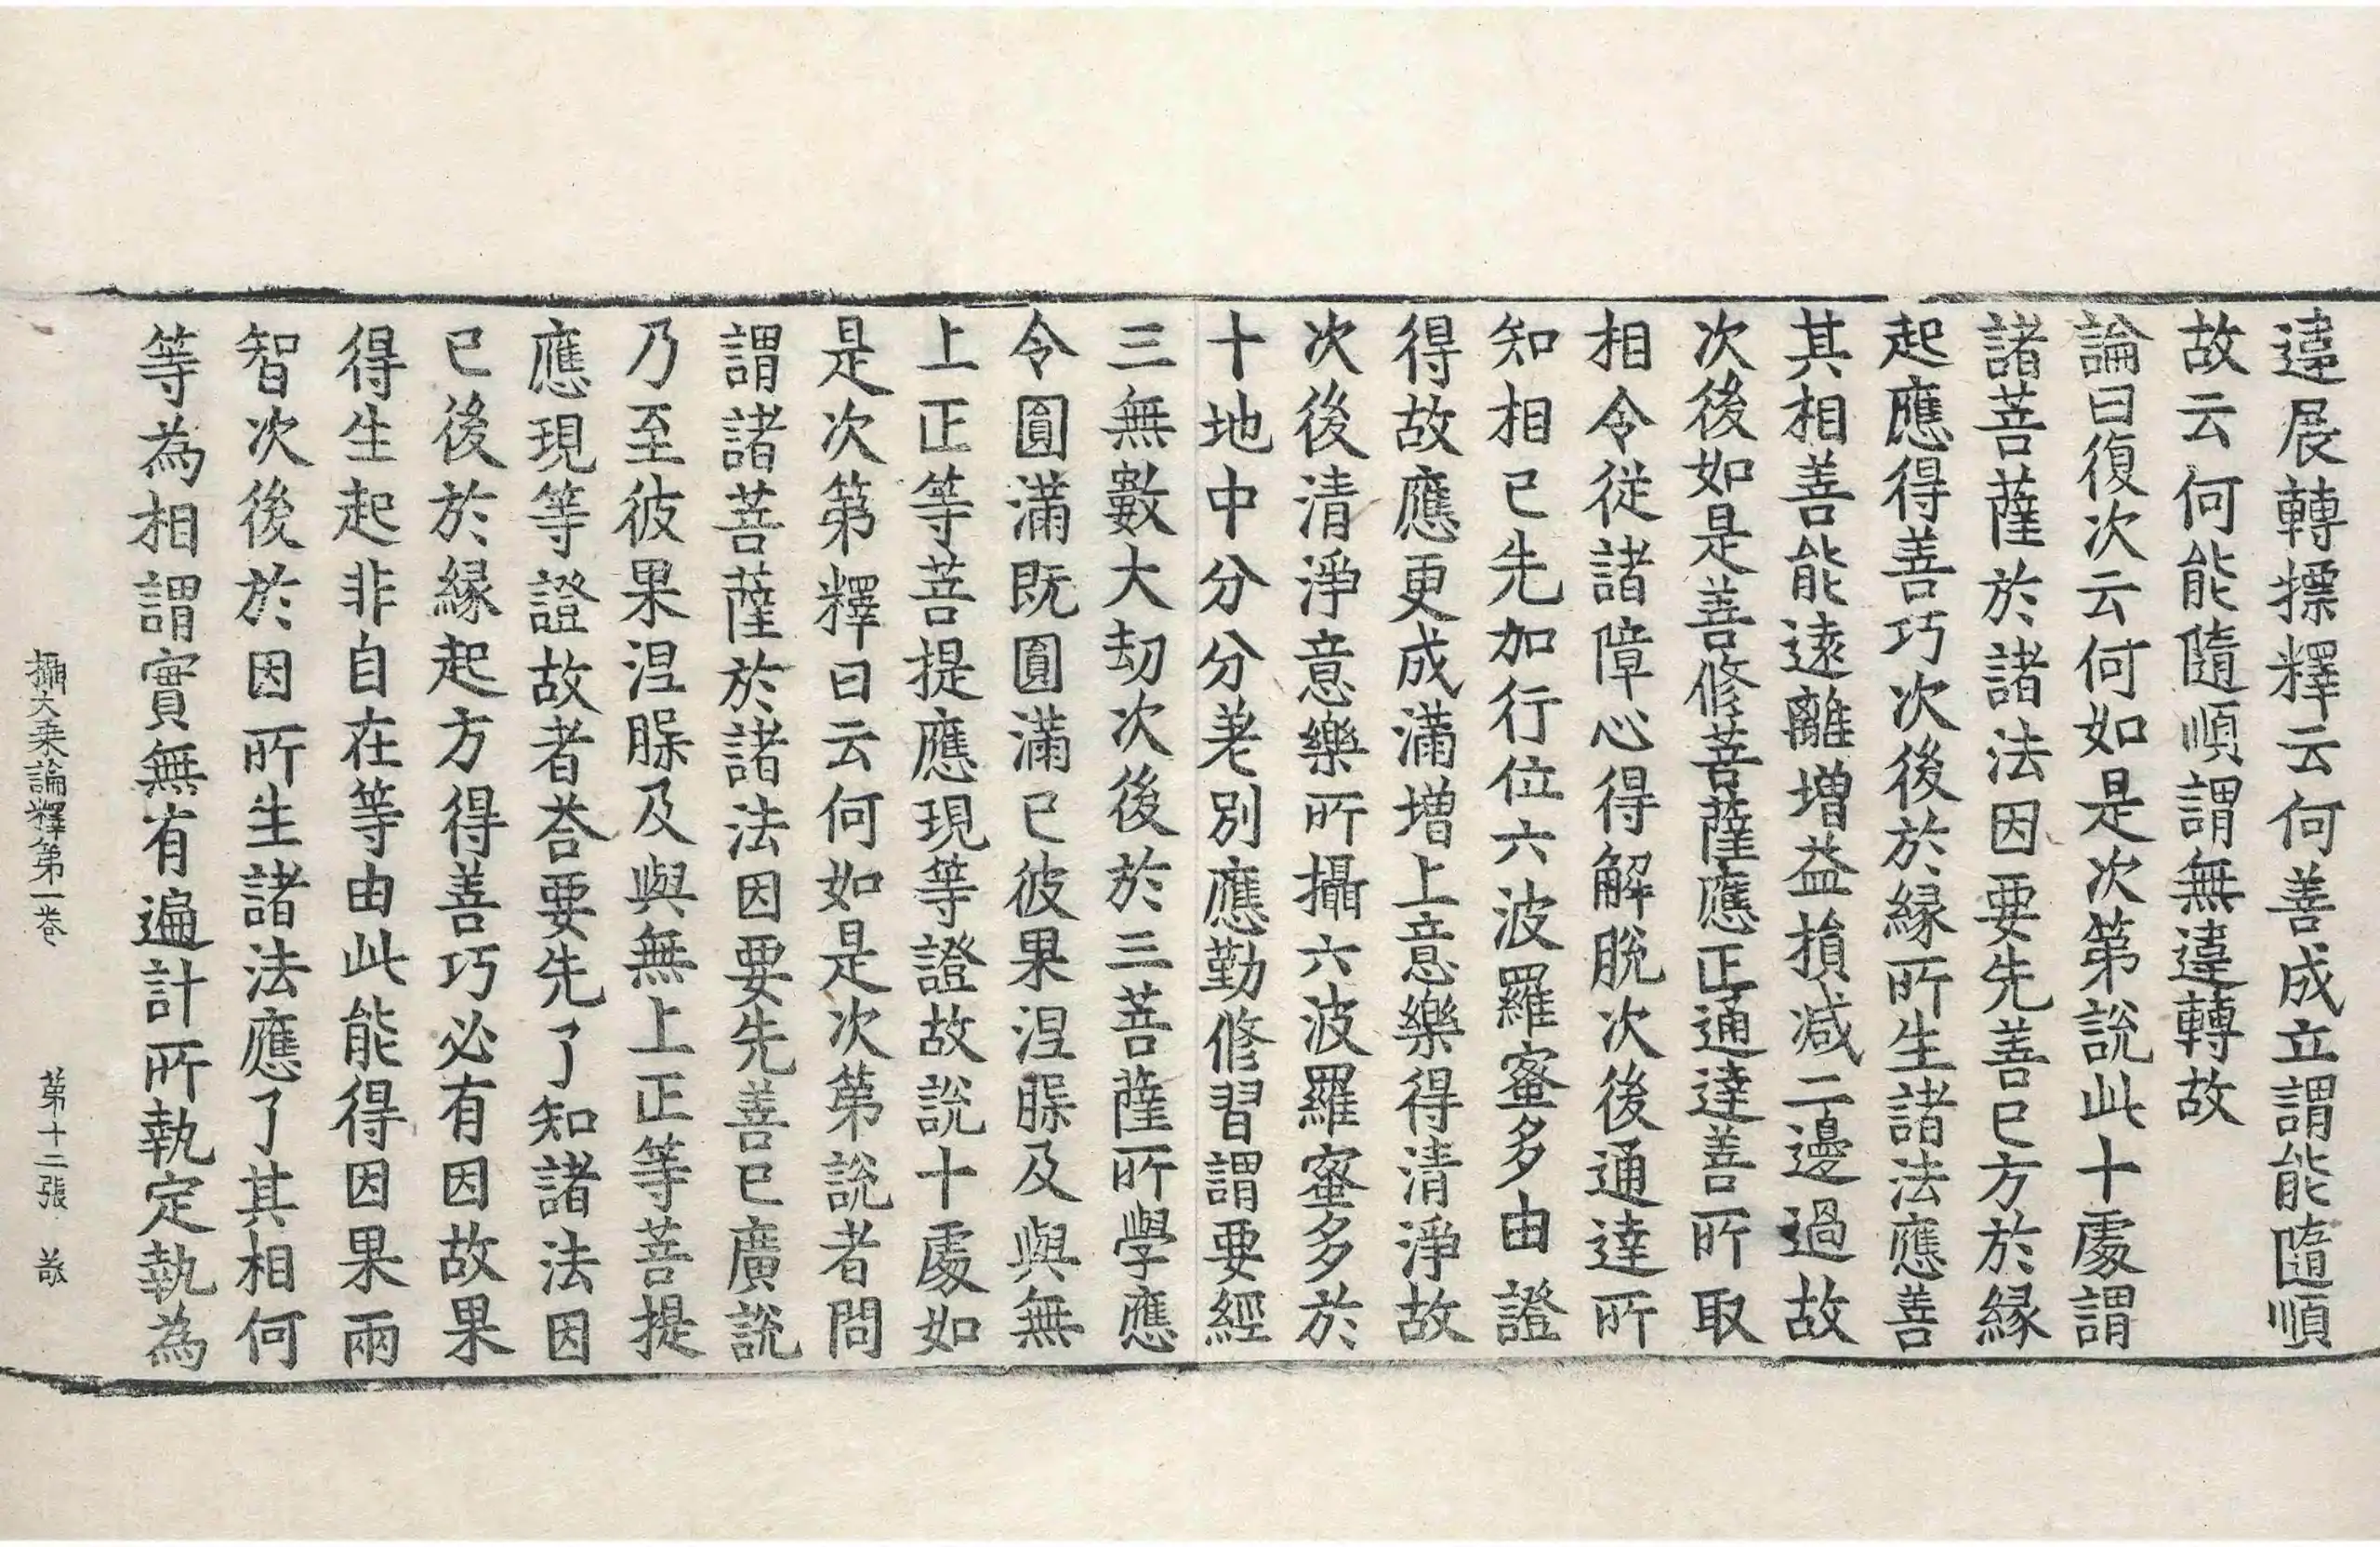 違展轉摽釋云何善成立謂能隨順
故云何能隨順謂無違轉故
論曰復次云何如是次第說此十處謂
諸菩薩於諸法因要先善已方於緣
起應得善巧次後於緣所生諸法應善
其相善能遠離增益損減二邊過故
次後如是善修菩薩應正通達善所取
相令從諸障心得解脫次後通達所
知相已先加行位六波羅蜜多由證
得故應更成滿增上意樂得清淨故
次後清淨意樂所攝六波羅蜜多於
十地中分分差別應勤修習謂要經
三無數大劫次後於三菩薩所學應
令圓滿既圓滿已彼果涅槃及與無
上正等菩提應現等證故說十處如
是次第釋曰云何如是次第說者問
謂諸菩薩於諸法因要先善已廣說
乃至彼果涅槃及與無上正等菩提
應現等證故者荅要先了知諸法因
已後於緣起方得善巧必有因故果
得生起非自在等由此能得因果兩
智次後於因所生諸法應了其相何
等為相謂實無有遍計所執定執為
攝大乘論釋第一卷　第十二張